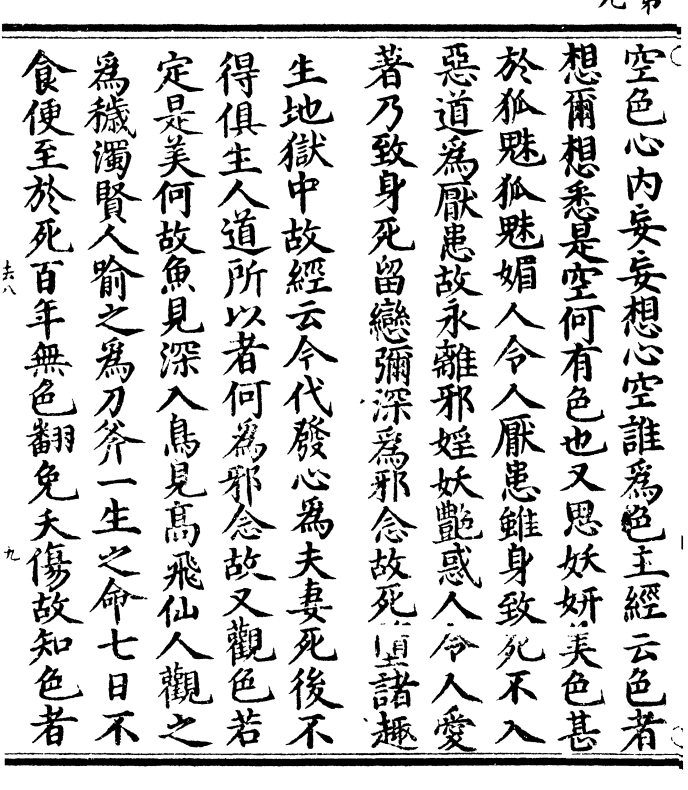 空色心内妄妄想心空誰爲色主經云色者
想爾想悉是空何有色也又思妖妍美色甚
於狐魅狐魅媚人令人厭患雖身致死不入
惡道爲厭患故永離邪婬妖艷惑人令人愛
著乃致身死留戀彌深爲邪念故死墮諸趣
生地獄中故經云今代發心爲夫妻死後不
得俱生人道所以者何爲邪念故又觀色若
定是美何故魚見深入鳥見高飛仙人觀之
爲穢濁賢人喻之爲刀斧一生之命七日不
食便至於死百年無色翻免夭傷故知色者
九